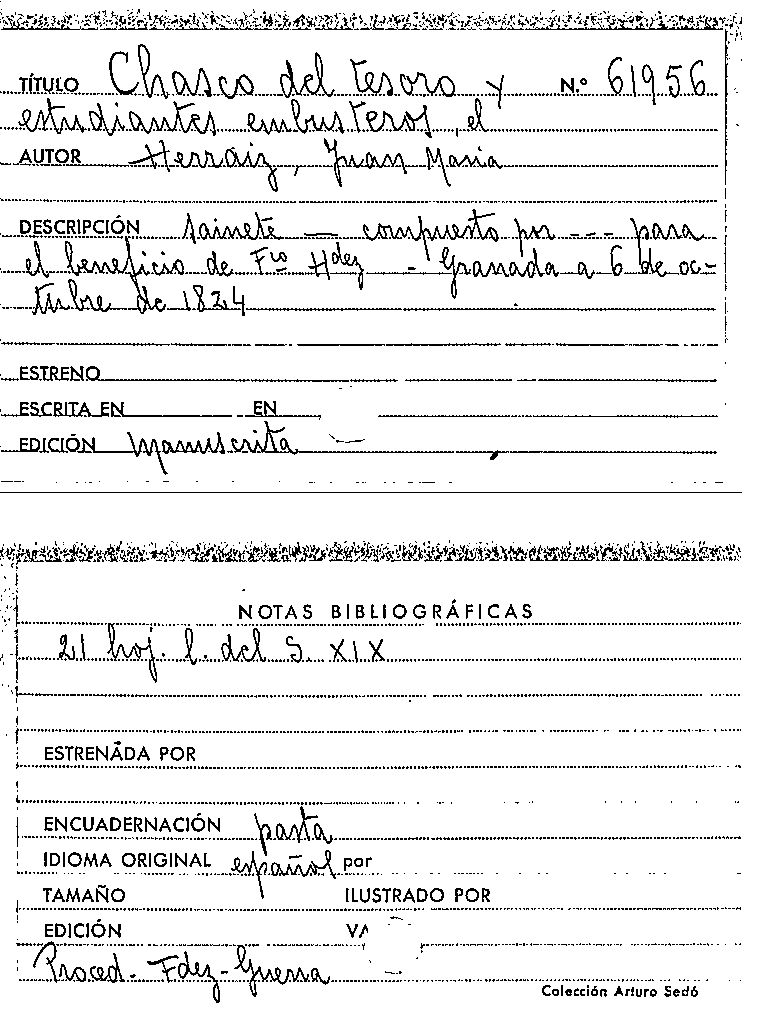 TÍTULO Chasco del tesoro y N.º 61956
estudiantes embusteros, el
AUTOR Herraiz, Juan Maria
DESCRIPCIÓN Sainete — compuesto por --- para
el beneficio de Fco Hdez - Granada a 6 de oc-
tubre de 1824
ESTRENO
ESCRITA EN EN
EDICIÓN Manuscrita
NOTAS BIBLIOGRÁFICAS
21 hoj. l. del S. XIX
ESTRENADA POR
ENCUADERNACIÓN pasta
IDIOMA ORIGINAL español por
TAMAÑO ILUSTRADO POR
EDICIÓN
Proced. Fdez-Guerra
Colección Arturo Sedó